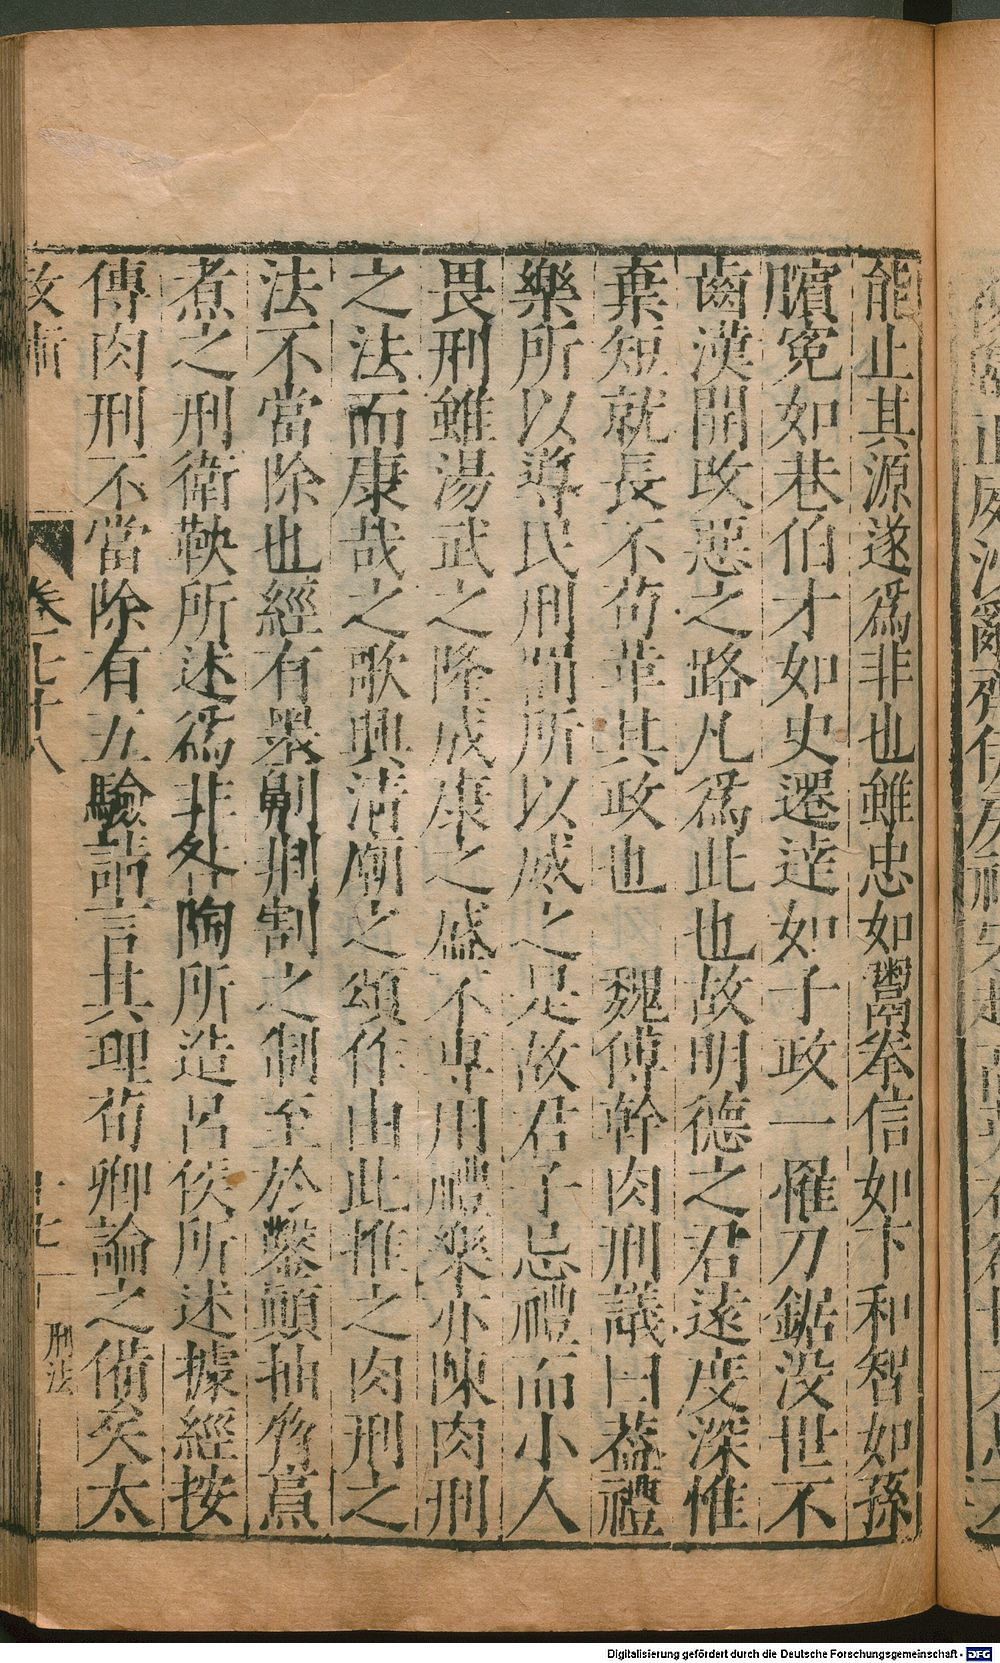 能止其源遂爲非也雖忠如鬻拳信如卞和智如孫
臏冤如巷伯才如史遷達如子政一罹刀鋸没世不
齒漢開改惡之路凡爲此也故明德之君遠度深惟
棄短就長不苟革其政也 魏傅幹肉刑議曰蓋禮
樂所以導民刑罰所以威之是故君子忌禮而小人
畏刑雖湯武之隆成康之盛不專用禮樂亦陳肉刑
之法而康哉之歌興清廟之頌作由此推之肉刑之
法不當除也經有墨劓剕割之制至於鑿顛抽脅烹
煮之刑衛鞅所述爲非咎陶所造呂侯所述據經按
傳肉刑不當除有五驗請言其理荀卿論之備矣太
卷七十八
刑法
Digitalisierung gefördert durch die Deutsche Forschungsgemeinschaft - DFG